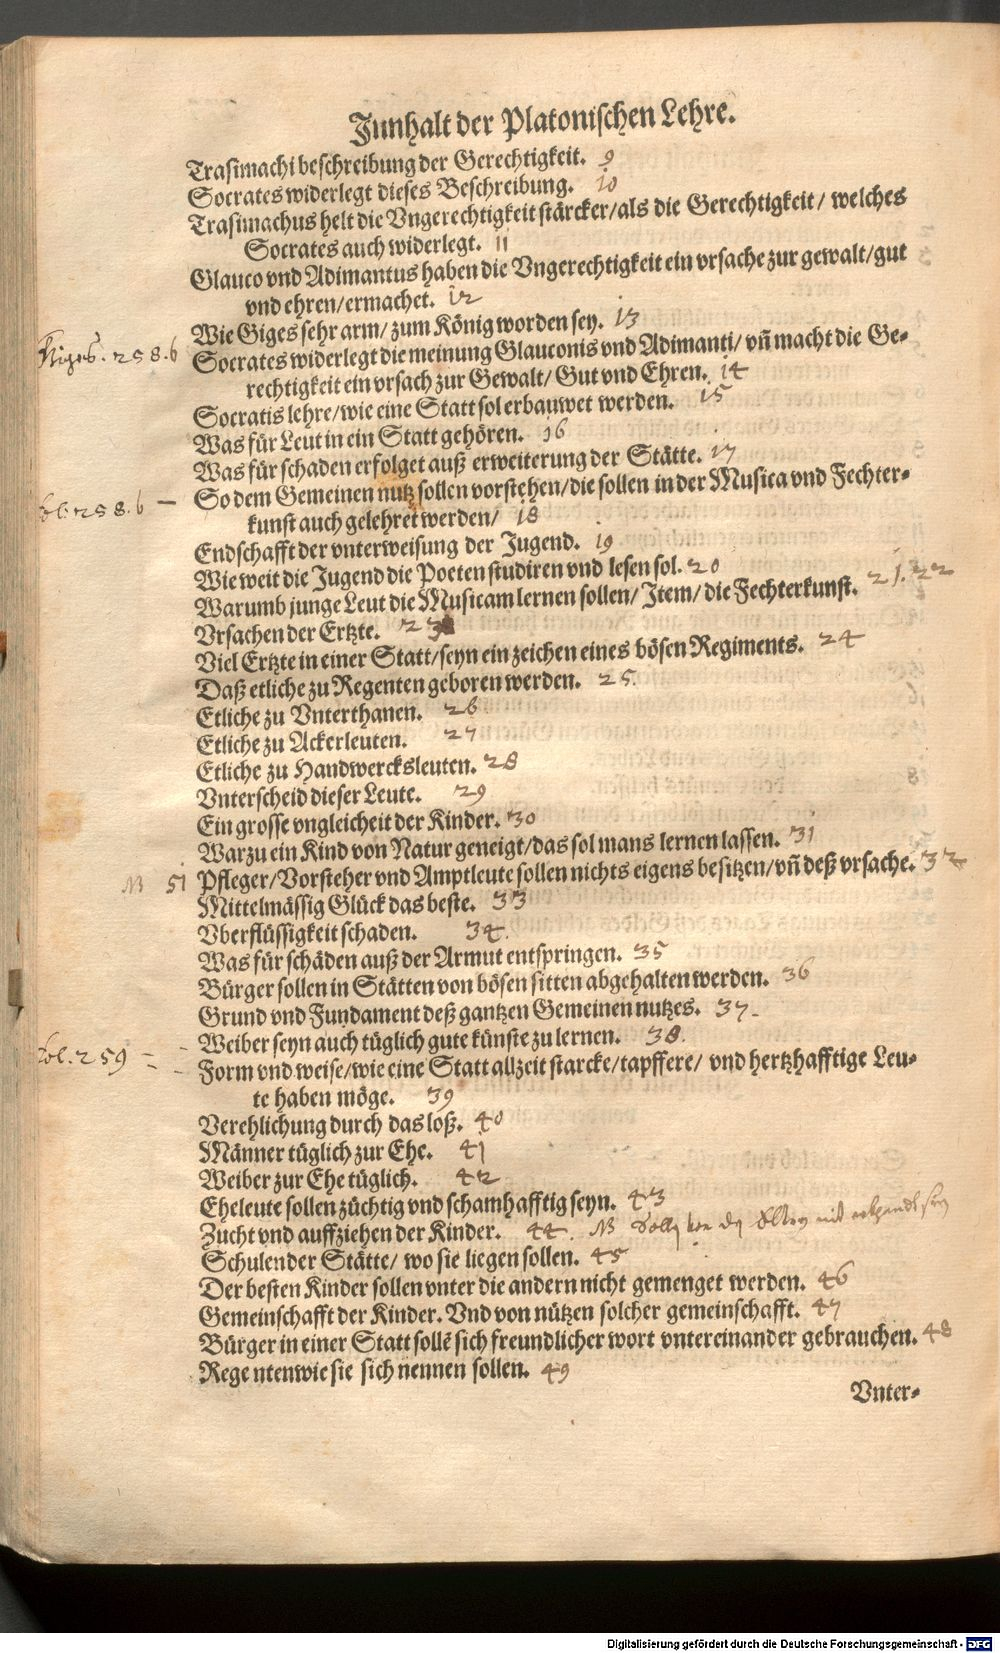 Innhalt der Platonischen Lehre.
Trasimachi beschreibung der Gerechtigkeit. 9
Socrates widerlegt dieses Beschreibung. 10
Trasimachus helt die Vngerechtigkeit stärcker/als die Gerechtigkeit/ welches
Socrates auch widerlegt. 11
Glauco vnd Adimantus haben die Vngerechtigkeit ein vrsache zur gewalt/gut
vnd ehren/ermachet. 12
Wie Giges sehr arm/ zum König worden sey. 13
Giges. 258.6
Socrates widerlegt die meinung Glauconis vnd Adimanti/ vn̄ macht die Ge-
rechtigkeit ein vrsach zur Gewalt/ Gut vnd Ehren. 14
Socratis lehre/wie eine Statt sol erbauwet werden. 15
Was für Leut in ein Statt gehören. 16
Was für schaden erfolget auß erweiterung der Stätte. 17
fol. 258.6 –
So dem Gemeinen nutz sollen vorstehen/die sollen in der Musica vnd Fechter-
kunst auch gelehret werden/ 18
Endschafft der vnterweisung der Jugend. 19
Wie weit die Jugend die Poeten studiren vnd lesen sol. 20
Warumb junge Leut die Musicam lernen sollen/ Item/ die Fechterkunst. 21.22
Vrsachen der Ertzte. 23
Viel Ertzte in einer Statt/seyn ein zeichen eines bösen Regiments. 24
Daß etliche zu Regenten geboren werden. 25
Etliche zu Vnterthanen. 26
Etliche zu Ackerleuten. 27
Etliche zu Handwercksleuten. 28
Vnterscheid dieser Leute. 29
Ein grosse vngleicheit der Kinder. 30
Warzu ein Kind von Natur geneigt/das sol mans lernen lassen. 31
NB 51 Pfleger/Vorsteher vnd Amptleute sollen nichts eigens besitzen/vn̄ deß vrsache. 32
Mittelmässig Glück das beste. 33
Vberflüssigkeit schaden. 34.
Was für schäden auß der Armut entspringen. 35
Bürger sollen in Stätten von bösen sitten abgehalten werden. 36
Grund vnd Fundament deß gantzen Gemeinen nutzes. 37
fol. 259 –
Weiber seyn auch tüglich gute künste zu lernen. 38.
Form vnd weise/wie eine Statt allzeit starcke/tapffere/ vnd hertzhafftige Leu-
te haben möge. 39
Verehlichung durch das loß. 40
Männer tüglich zur Ehe. 41
Weiber zur Ehe tüglich. 42
Eheleute sollen züchtig vnd schamhafftig seyn. 43
Zucht vnd auffziehen der Kinder. 44. NB
Schulen der Stätte/ wo sie liegen sollen. 45
Der besten Kinder sollen vnter die andern nicht gemenget werden. 46
Gemeinschafft der Kinder. Vnd von nützen solcher gemeinschafft. 47
Bürger in einer Statt sollē sich freundlicher wort vntereinander gebrauchen. 48
Rege nten wie sie sich nennen sollen. 49
Vnter-
Digitalisierung gefördert durch die Deutsche Forschungsgemeinschaft - DFG